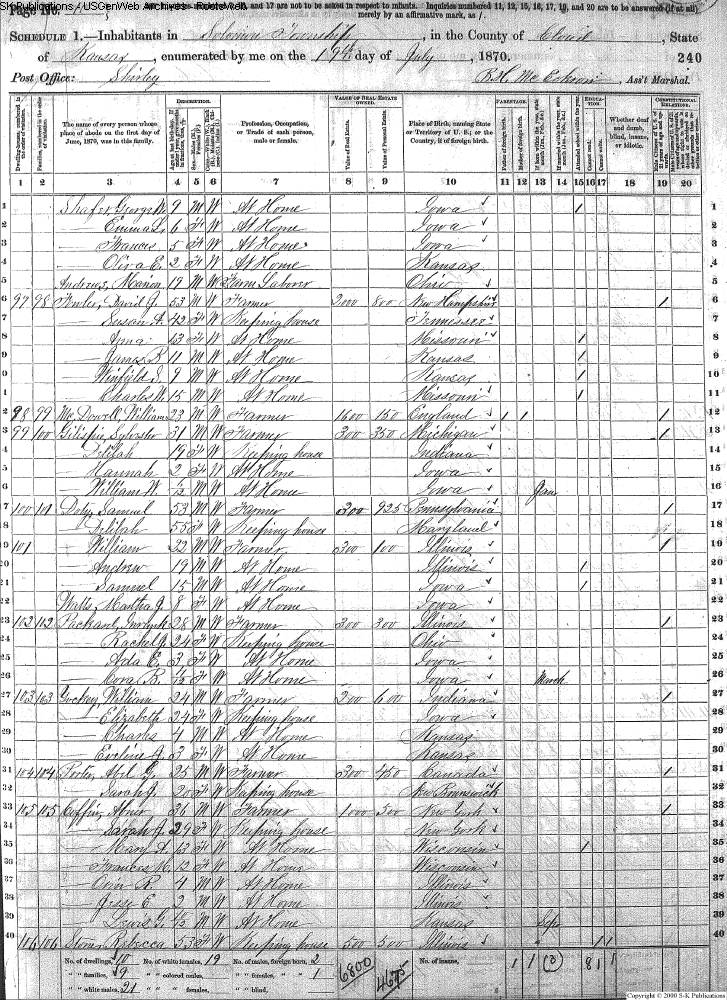 SK Publications / USGenWeb Archives
Page No.
and 17 are not to be asked in respect to infants. Inquiries numbered 11, 12, 15, 16, 17, 19, and 20 are to be answered (if at all)
merely by an affirmative mark, as /.
SCHEDULE 1.—Inhabitants in Solomon Township, in the County of Cloud, State
of Kansas, enumerated by me on the 19th day of July, 1870.
240
Post Office: Shirley
Ass't Marshal.
DESCRIPTION. VALUE OF REAL ESTATE OWNED. PARENTAGE. EDUCATION. CONSTITUTIONAL RELATIONS.
The name of every person whose place of abode on the first day of June, 1870, was in this family.
Profession, Occupation, or Trade of each person, male or female.
Value of Real Estate. Value of Personal Estate.
Place of Birth, naming State or Territory of U. S.; or the Country, if of foreign birth.
Whether deaf and dumb, blind, insane, or idiotic.
1 2 3 4 5 6 7 8 9 10 11 12 13 14 15 16 17 18 19 20
1 Shafer, George W. 9 M W At Home Iowa / 1
2 — Emma L. 6 F W At Home Iowa 2
3 — Frances 5 F W At Home Iowa 3
4 — Oliva E. 2 F W At Home Kansas 4
5 Andrews, Marion 19 M W Farm Laborer Ohio 5
6 97 98 Fowler, David G. 53 M W Farmer 2000 800 New Hampshire / 6
7 — Susan A. 42 F W Keeping house Tennessee 7
8 — Anna 13 F W At Home Missouri / 8
9 — James B. 11 M W At Home Kansas / 9
10 — Winfield S. 9 M W At Home Kansas / 10
11 — Charles W. 15 M W At Home Missouri / 11
12 98 99 McDowell, William 23 M W Farmer 1600 150 England / / / 12
13 99 100 Gilispin, Sylvester 31 M W Farmer 300 350 Michigan / 13
14 — Delilah 19 F W Keeping house Indiana 14
15 — Hannah 2 F W At Home Iowa 15
16 — William W. M W At Home Iowa Jan 16
17 100 101 Doty, Samuel 53 M W Farmer 300 925 Pennsylvania / 17
18 — Delilah 55 F W Keeping house Maryland 18
19 101 — William 22 M W Farmer 300 100 Illinois / 19
20 — Andrew 19 M W At Home Illinois / 20
21 — Samuel 15 M W At Home Iowa / 21
22 Watts, Martha J. 8 F W At Home Iowa 22
23 102 102 Packard, 28 M W Farmer 300 300 Illinois / 23
24 — Rachel 24 F W Keeping house Ohio 24
25 — Ada E. 3 F W At Home Iowa 25
26 — Cora B. F W At Home Iowa March 26
27 103 103 Gockey, William 24 M W Farmer 200 600 Indiana / 27
28 — Elizabeth 24 F W Keeping house Iowa 28
29 — Charles 4 M W At Home Kansas 29
30 — Eveline A. 3 F W At Home Kansas 30
31 104 104 Porter, Abel G. 25 M W Farmer 300 450 Canada / 31
32 — Sarah J. 20 F W Keeping house New Brunswick 32
33 105 105 Coffing, Abner 36 M W Farmer 1000 500 New York / 33
34 — Sarah J. 29 F W Keeping house New York 34
35 — Mary A. 13 F W At Home Wisconsin / 35
36 — Frances M. 12 F W At Home Wisconsin 36
37 — Orin R. 4 M W At Home Illinois 37
38 — Jesse E. 2 M W At Home Illinois 38
39 — Lewis G. M W At Home Kansas Sept 39
40 106 106 Stoner, Rebecca 53 F W Keeping house 500 500 Illinois / / 40
No. of dwellings, 10 No. of white females, 19 No. of males, foreign born, 2 No. of insane,
" " families, 9 " " colored males, " " females, " 1
" " white males, 21 " " females, " " blind,
6800 4675 1 1 (3) 8 1 1
Copyright © 2000 S-K Publications